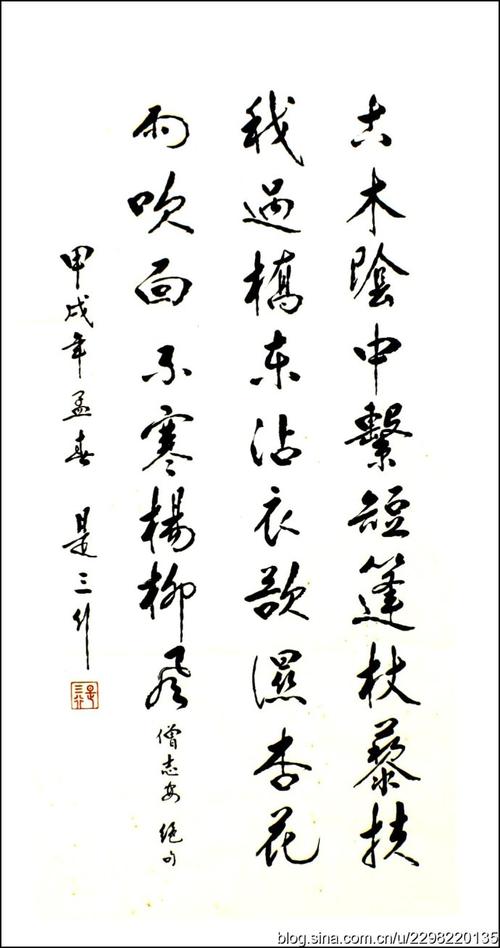 古木陰中繫短篷杖藜扶
我過橋東沾衣欲濕杏花
雨吹面不寒楊柳風
僧志安 絕句
甲戌年孟春 是三
blog.sina.com.cn/u/2298220135